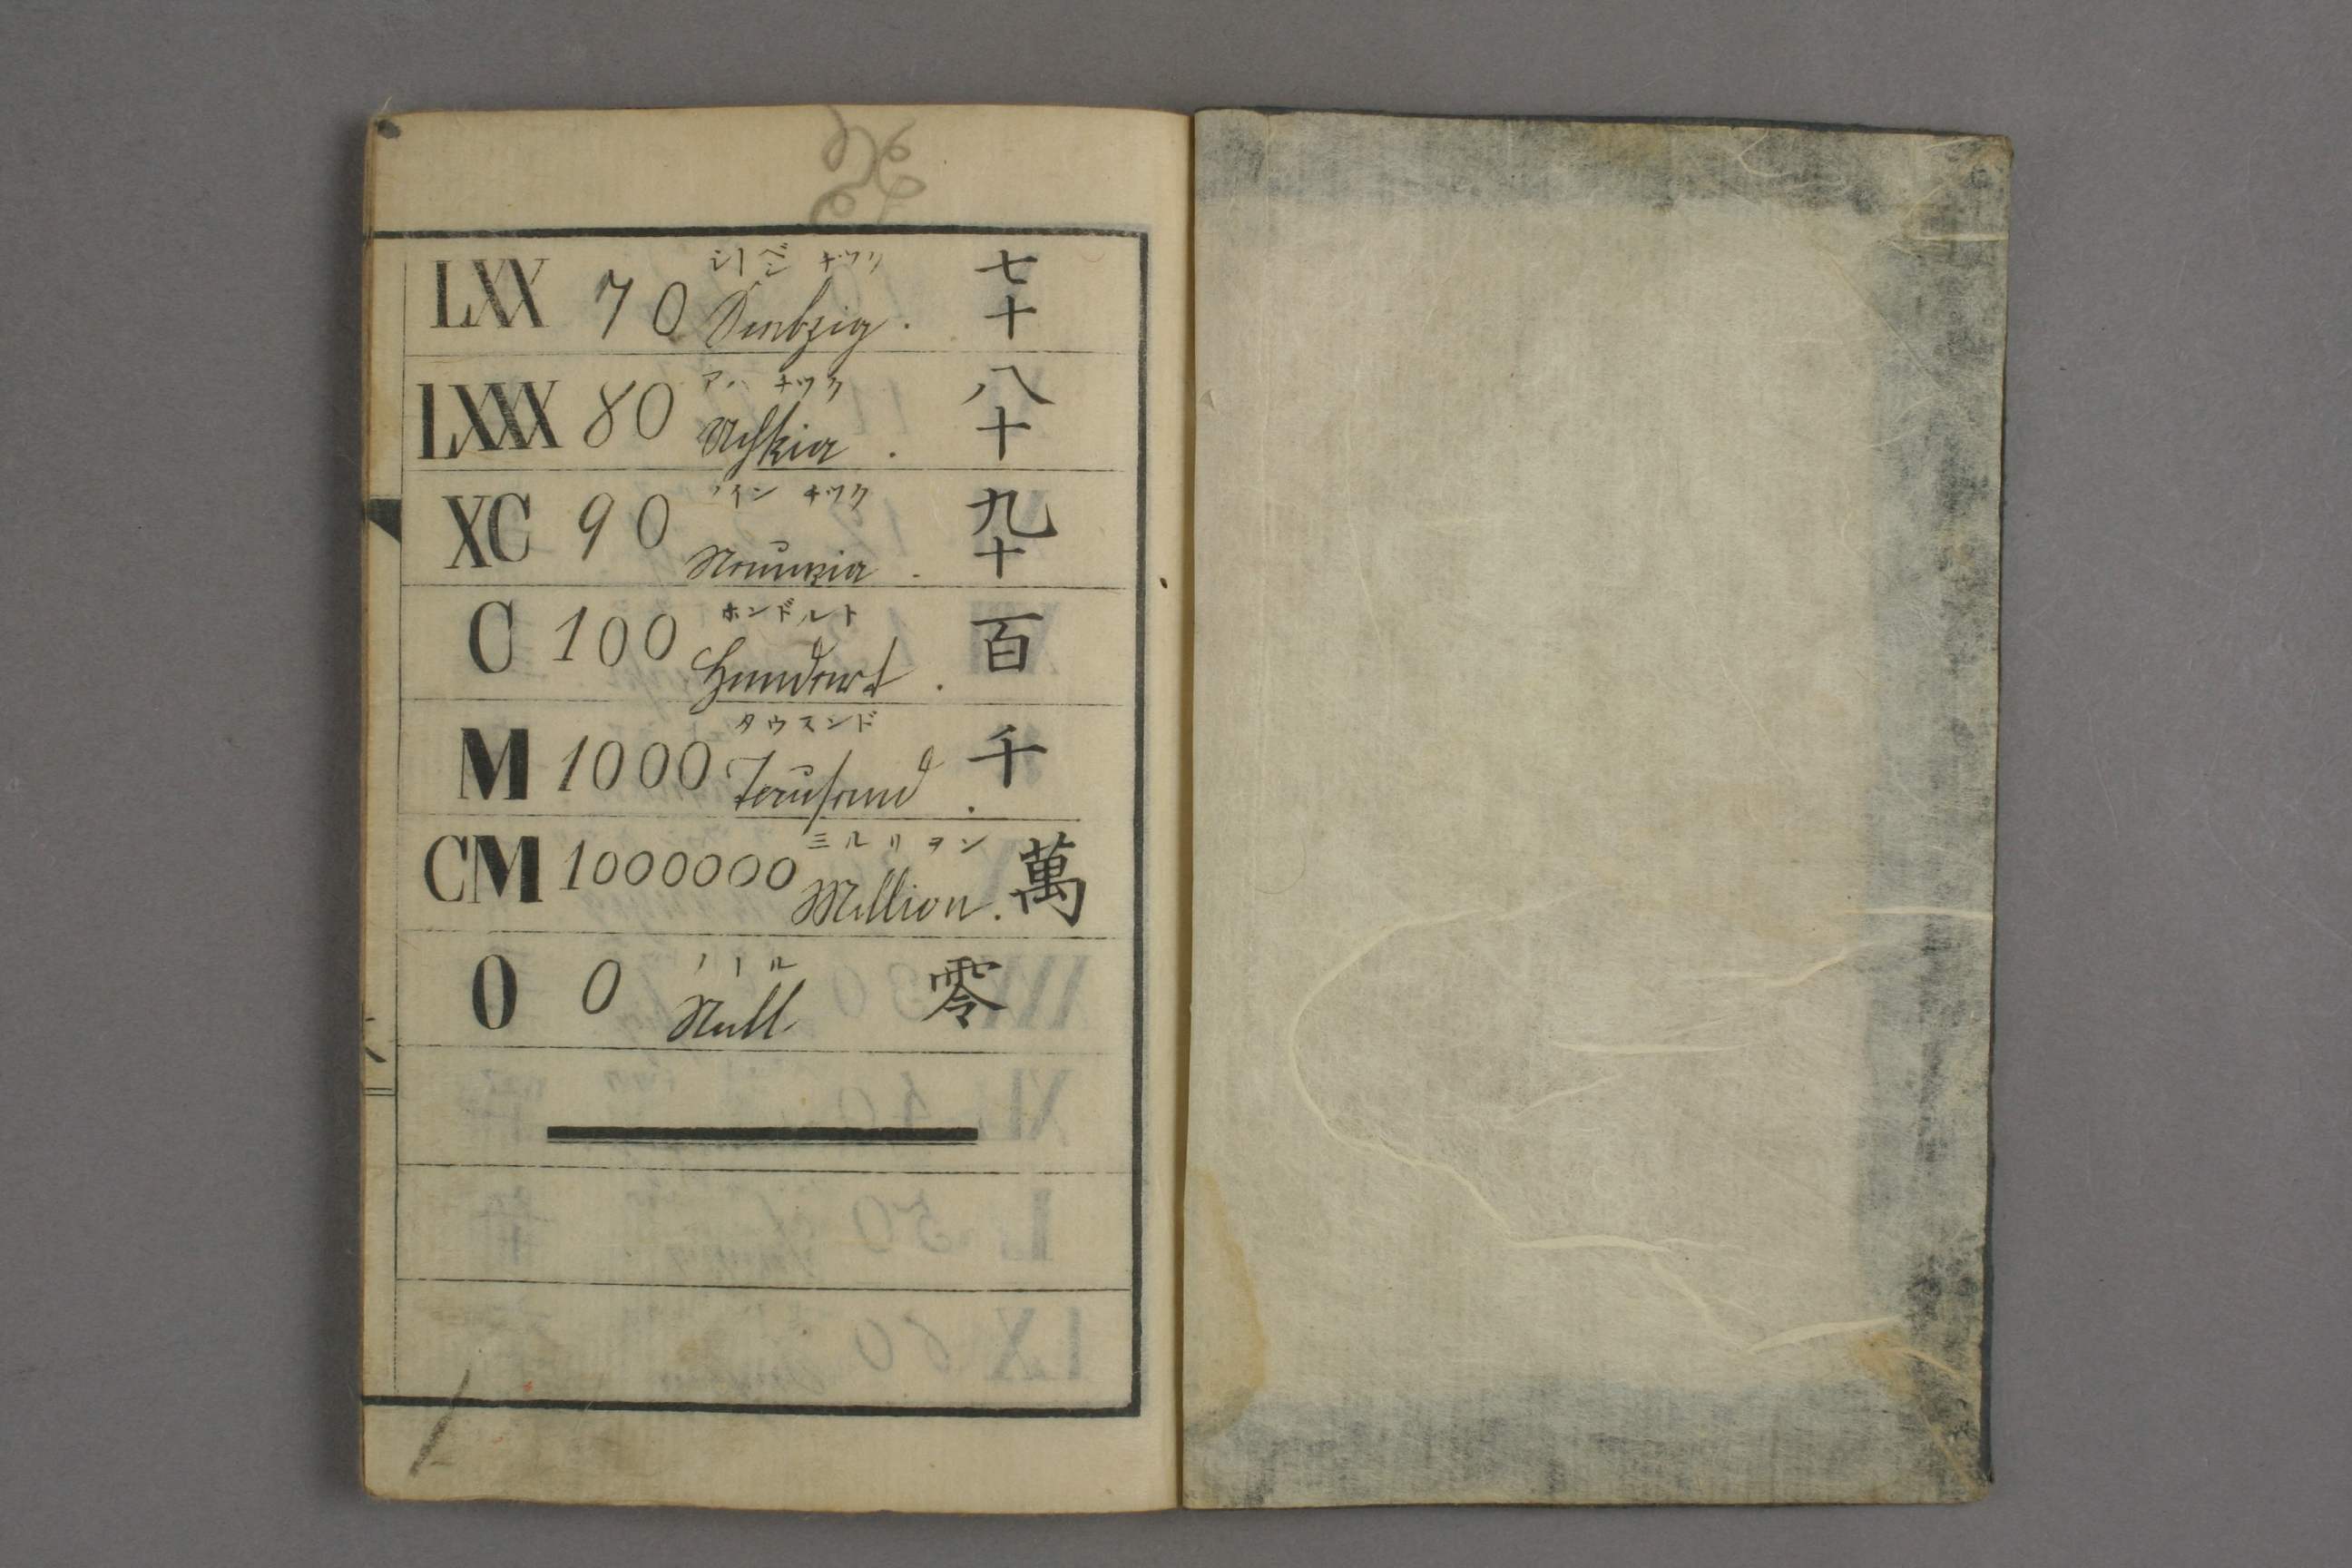 LXX 70 シーベンチツク Siebzig. 七十
LXXX 80 アハチツク Achtzig. 八十
XC 90 ノインチツク Neunzig. 九十
C 100 ホンドルト Hundert. 百
M 1000 タウスンド Tausend. 千
CM 1000000 ミルリヲン Million. 萬
0 0 ノール Null 零